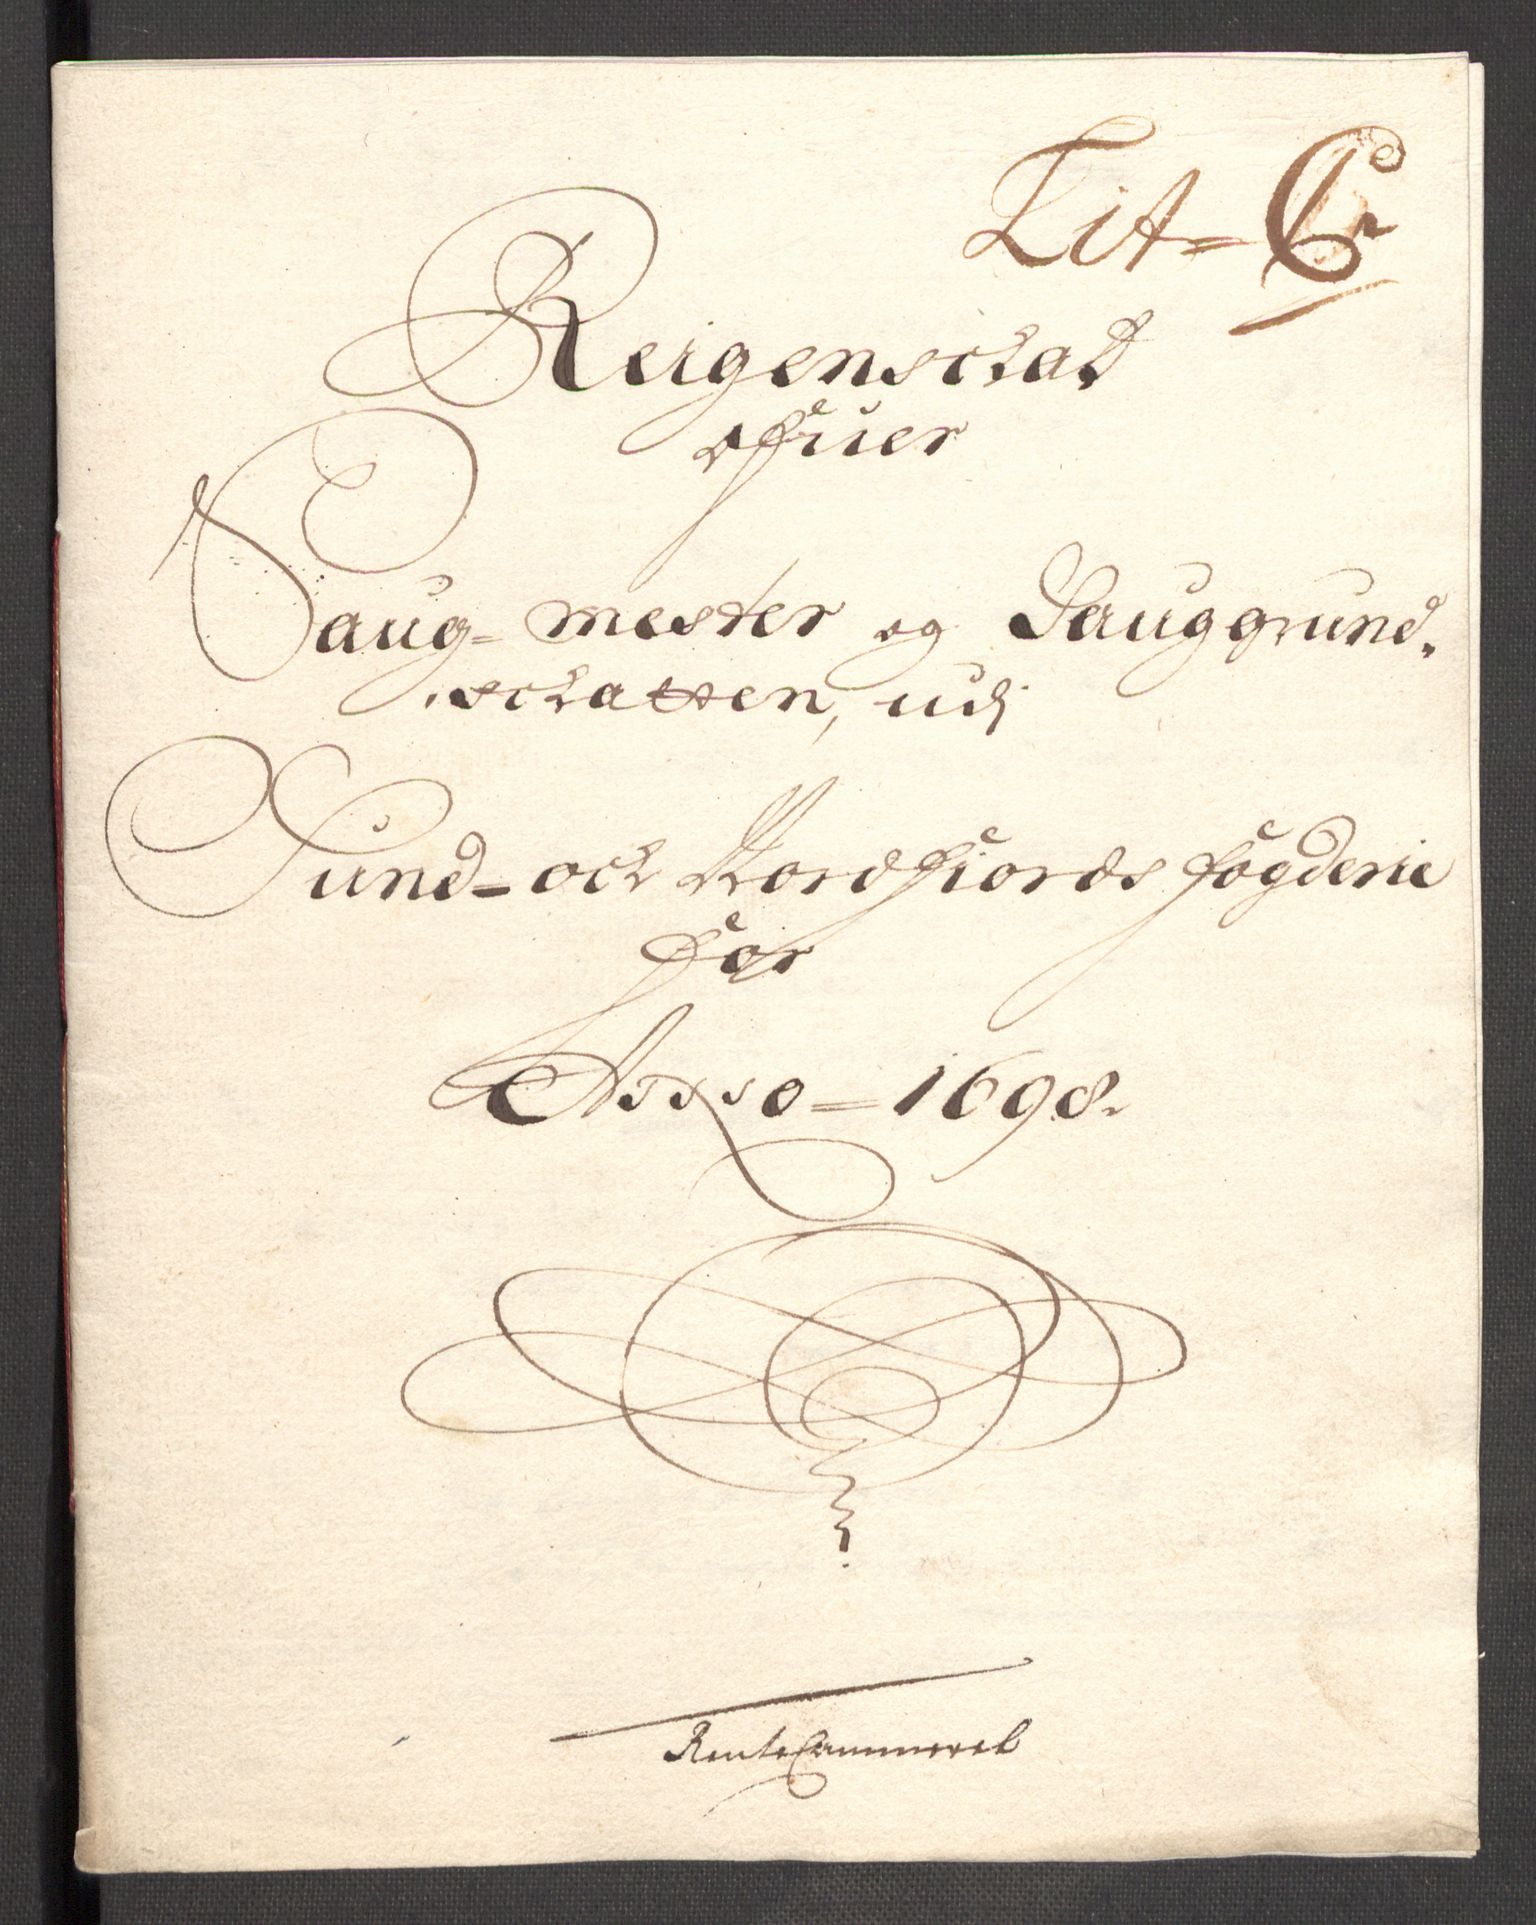 Lit = C.
Reigenschab
ofuer
Saug = mester og Sauggrund.
schatten, udj
Sund- och Nordfiords fögderie
for
Anno = 1698.
RenteCammeret